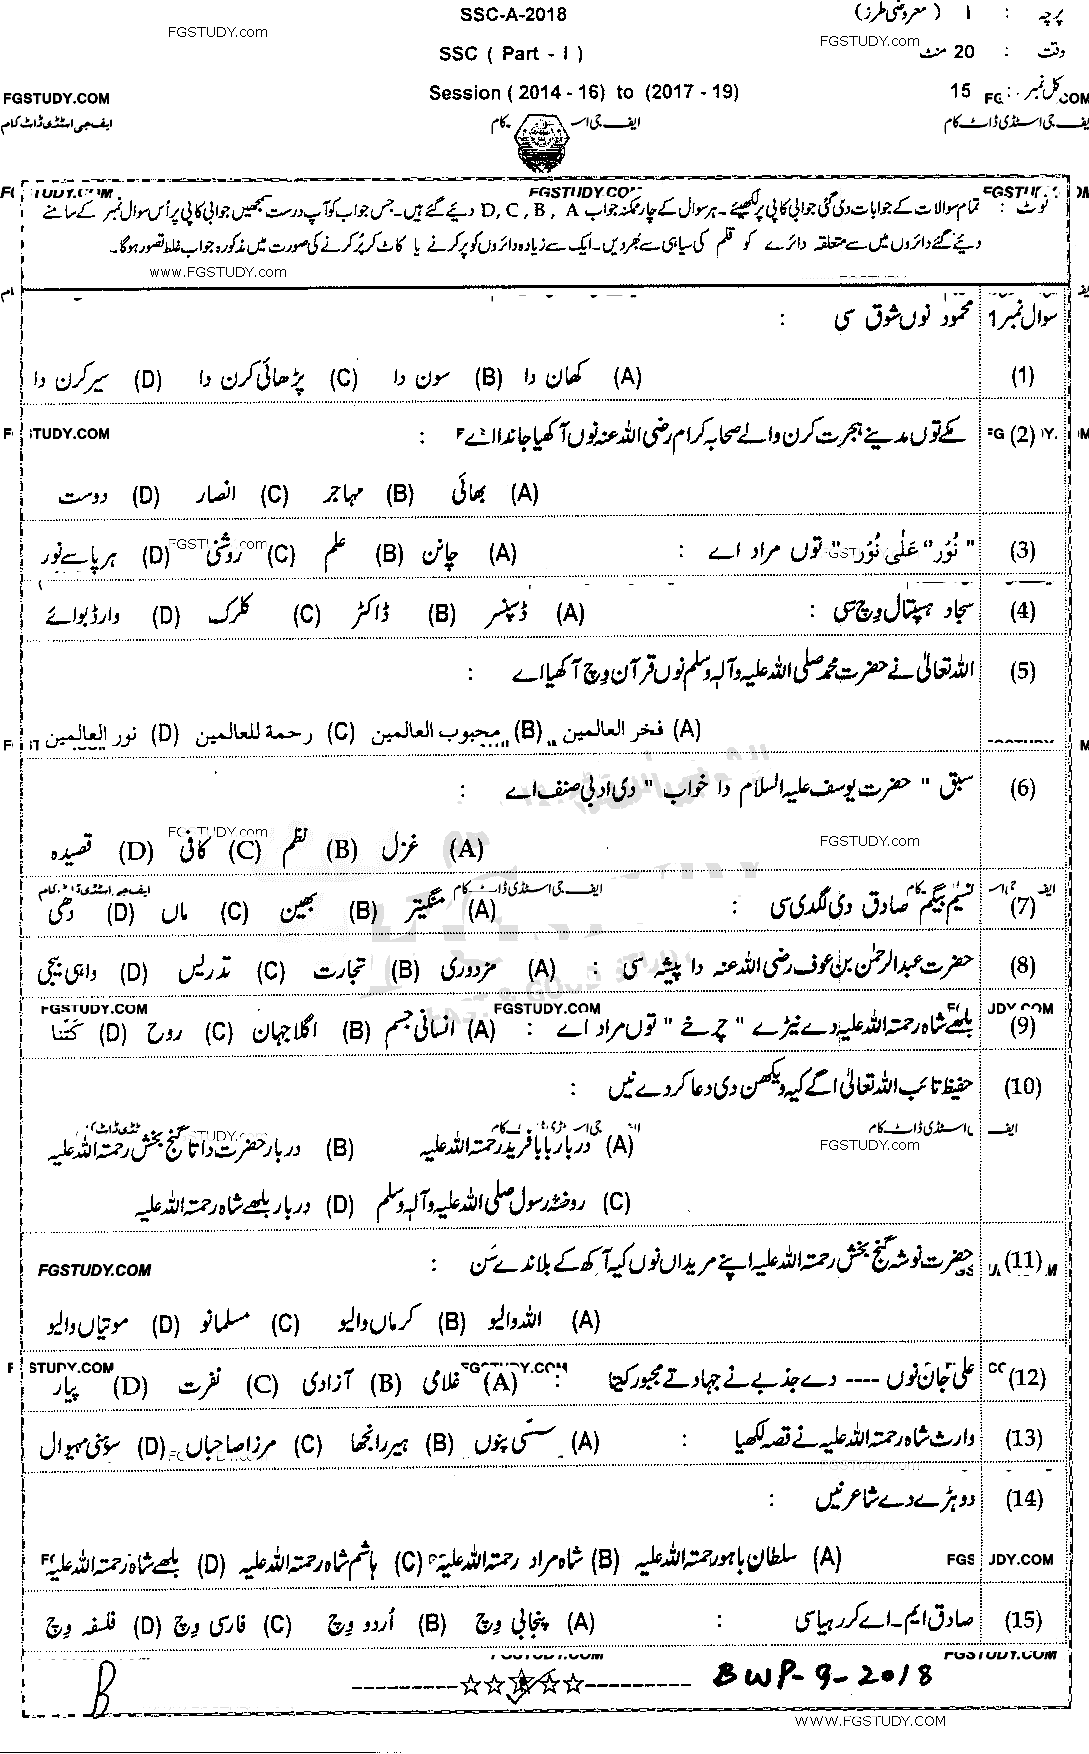 SSC-A-2018
پرچہ : I ( معروضی طرز)
FGSTUDY.com
FGSTUDY.com
SSC ( Part - I )
وقت : 20 منٹ
Session ( 2014 - 16) to (2017 - 19)
کل نمبر : 15
FGSTUDY.COM
ایف جی اسٹڈی ڈاٹ کام
ایف جی اسٹڈی ڈاٹ کام
FGSTUDY.COM
نوٹ : تمام سوالات کے جوابات دی گئی جوابی کاپی پر لکھیئے ۔ ہر سوال کے چار ممکنہ جواب D, C, B, A دیئے گئے ہیں۔ جس جواب کو آپ درست سمجھیں جوابی کاپی پر اُس سوال نمبر کے سامنے
دیئے گئے دائروں میں سے متعلقہ دائرے کو قلم کی سیاہی سے بھر دیں۔ ایک سے زیادہ دائروں کو پُر کرنے یا کاٹ کر پُر کرنے کی صورت میں مذکورہ جواب غلط تصور ہوگا۔
www.FGSTUDY.com
سوال نمبر 1 محمود نوں شوق سی :
(1) (A) کھان دا (B) سون دا (C) پڑھائی کرن دا (D) سیر کرن دا
(2) مکے توں مدینے ہجرت کرن والے صحابہ کرام رضی اللہ عنہ نوں آکھیا جاندا اے :
FGSTUDY.COM
(A) بھائی (B) مہاجر (C) انصار (D) دوست
(3) " نُوْر" عَلٰی نُوْر " توں مراد اے : (A) چانن (B) علم (C) روشنی (D) ہر پاسے نور
(4) سجاد ہسپتال وچ سی : (A) ڈسپنسر (B) ڈاکٹر (C) کلرک (D) وارڈ بوائے
(5) اللہ تعالیٰ نے حضرت محمد صلی اللہ علیہ وآلہ وسلم نوں قرآن وچ آکھیا اے :
(A) فخر العالمین (B) محبوب العالمین (C) رحمة للعالمین (D) نور العالمین
(6) سبق " حضرت یوسف علیہ السلام دا خواب " دی ادبی صنف اے :
(A) غزل (B) نظم (C) کافی (D) قصیدہ
FGSTUDY.com
(7) نسیم بیگم صادق دی لگدی سی : (A) منگیتر (B) بھین (C) ماں (D) دھی
(8) حضرت عبدالرحمٰن بن عوف رضی اللہ عنہ دا پیشہ سی : (A) مزدوری (B) تجارت (C) تدریس (D) واہی بیجی
FGSTUDY.COM
FGSTUDY.COM
(9) بلھے شاہ رحمتہ اللہ علیہ دے نیڑے " چرخے " توں مراد اے : (A) انسانی جسم (B) اگلا جہان (C) روح (D) کتنا
(10) حفیظ تائب اللہ تعالیٰ اگے کیہ ویکھن دی دعا کردے نیں :
(A) دربار بابا فرید رحمتہ اللہ علیہ (B) دربار حضرت داتا گنج بخش رحمتہ اللہ علیہ
FGSTUDY.com
(C) روضۂ رسول صلی اللہ علیہ وآلہ وسلم (D) دربار بلھے شاہ رحمتہ اللہ علیہ
(11) حضرت نوشہ گنج بخش رحمتہ اللہ علیہ اپنے مریداں نوں کیہ آکھ کے بلاندے سَن :
FGSTUDY.COM
(A) اللہ والیو (B) کرماں والیو (C) مسلمانو (D) موتیاں والیو
(12) علی جان نوں ---- دے جذبے نے جہاد تے مجبور کیتا : (A) غلامی (B) آزادی (C) نفرت (D) پیار
(13) وارث شاہ رحمتہ اللہ علیہ نے قصہ لکھیا : (A) سسّی پنوں (B) ہیر رانجھا (C) مرزا صاحباں (D) سوہنی مہیوال
(14) دوہڑے دے شاعر نیں :
(A) سلطان باہو رحمتہ اللہ علیہ (B) شاہ مراد رحمتہ اللہ علیہ (C) ہاشم شاہ رحمتہ اللہ علیہ (D) بلھے شاہ رحمتہ اللہ علیہ
(15) صادق ایم۔اے کر رہیا سی : (A) پنجابی وچ (B) اُردو وچ (C) فارسی وچ (D) فلسفہ وچ
FGSTUDY.COM
BWP-9-2018
B
WWW.FGSTUDY.COM